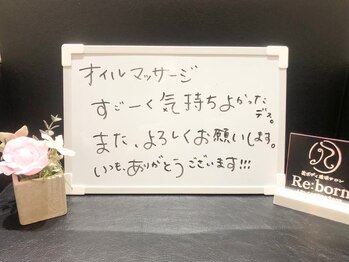 オイルマッサージ
すごーく気持ちよかった
デス。
また、よろしくお願いします。
いつも、ありがとうございます!!!
Re:born